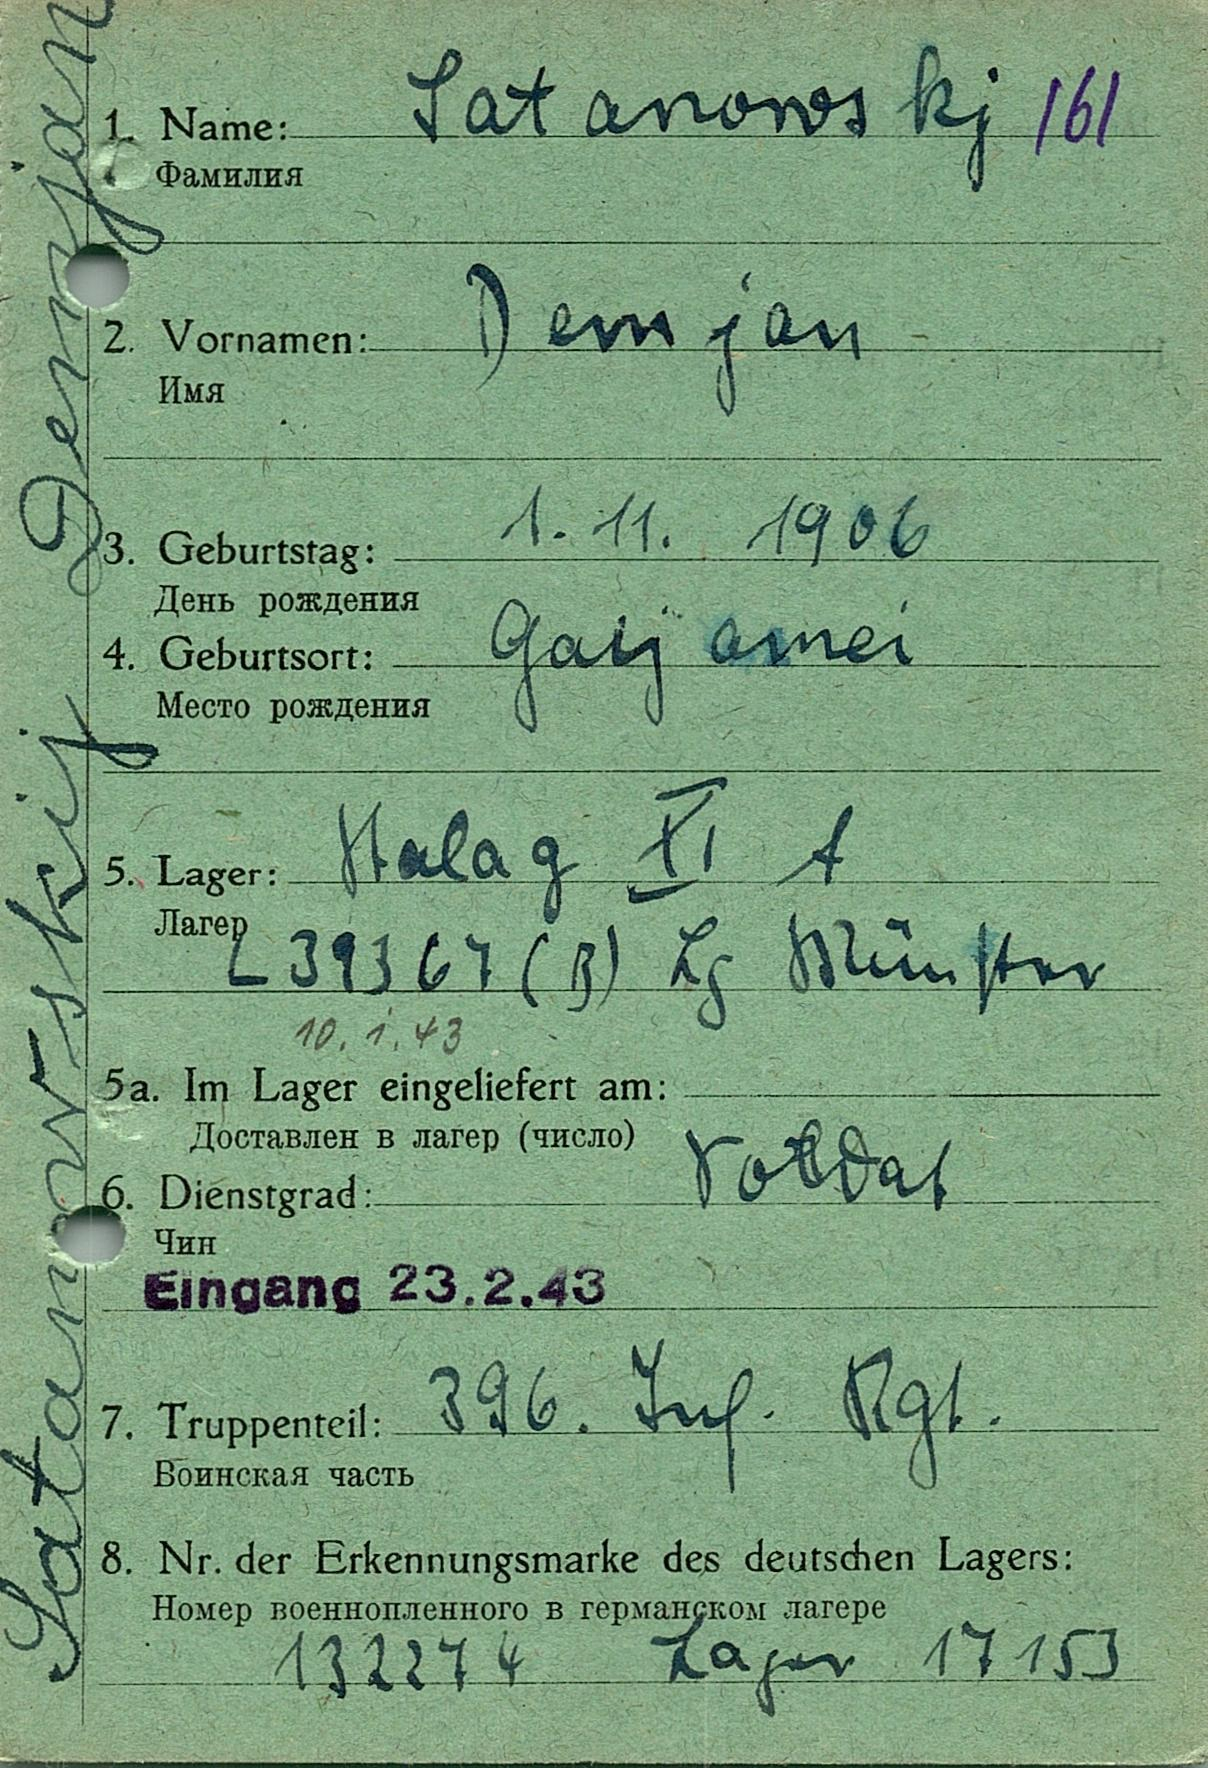 1. Name: Satanowskj 161
Фамилия
2. Vornamen: Demjan
Имя
3. Geburtstag: 1. 11. 1906
День рождения
4. Geburtsort:
Место рождения
5. Lager: Stalag XI A
Лагер
L 39367 (B) Lg Münster
10. 1. 43
5a. Im Lager eingeliefert am:
Доставлен в лагер (число)
6. Dienstgrad: Soldat
Чин
Eingang 23.2.43
7. Truppenteil: 396. Inf. Rgt.
Воинская часть
8. Nr. der Erkennungsmarke des deutschen Lagers:
Номер военнопленного в германском лагере
132274 Lager 17153
Satanovskij Demjan